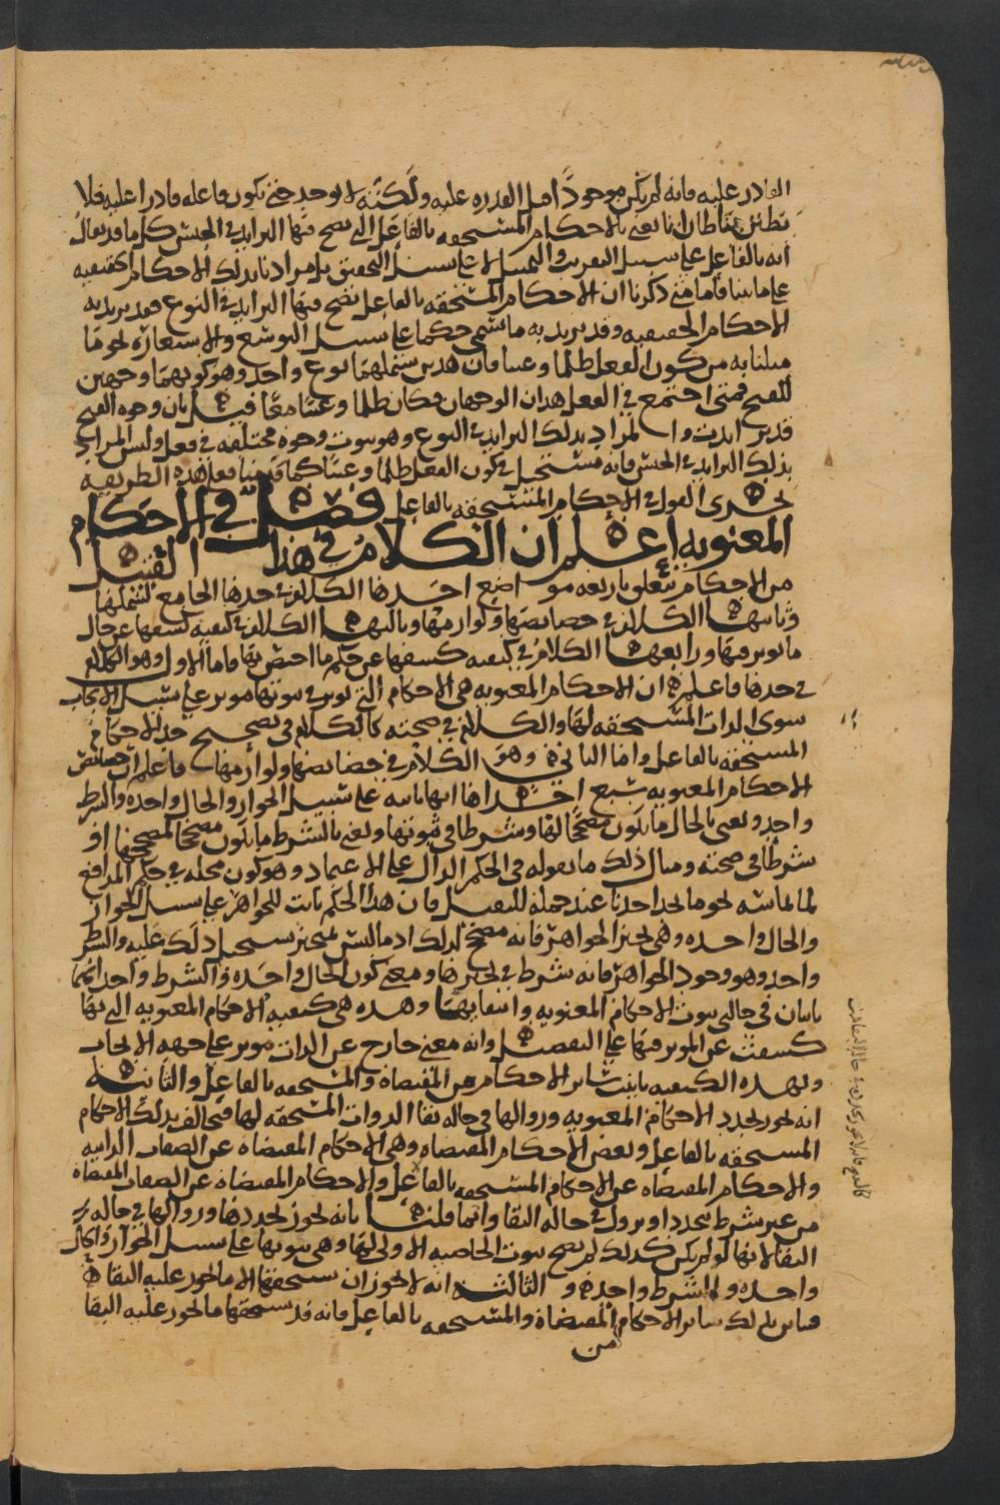 القادر عليه فانه لم يكن موجودا قبل القدره عليه ولكنه لا يوجد حتى يكون فاعله قادرا عليه فلا
يظن ظان انا نعني بالاحكام المستحقه بالفاعل التي يصح فيها التزايد في الجنس كلما قد يقال
انه بالفاعل على سبيل التقريب والتمثيل لا على سبيل التحقيق بل مرادنا بذلك الاحكام الحقيقيه
على ما بينا فاما متى ذكرنا ان الاحكام المستحقه بالفاعل يصح فيها التزايد في النوع فقد نريد به
الاحكام الحقيقيه وقد نريد به ما يسمى حكما على سبيل التوسع والاستعاره نحو ما
مثلنا به من كون الفعل ظلما وعبثا فان هذين يشملهما نوع واحد وهو كونهما وجهين
للقبح فمتى اجتمع في الفعل هذان الوجهان فكان ظلما وعبثا معا قيل بان وجوه القبح
قد تزايدت والمراد بذلك التزايد في النوع وهو ثبوت وجوه مختلفه في فعل وليس المراد
بذلك التزايد في الجنس فانه مستحيل في كون الفعل ظلما وعبثا كما قدمنا فعلى هذه الطريقه
يجري القول في الاحكام المستحقه بالفاعل فصل في الاحكام
المعنويه اعلم ان الكلام في هذا القبيل
من الاحكام يتعلق باربعه مواضع احدها الكلام في حدها الجامع لشملها
وثانيها الكلام في خصائصها ولوازمها وثالثها الكلام في كيفيه كشفها عن حال
ما يوثر فيها ورابعها الكلام في كيفيه كشفها عن حكم ما اختص بها فاما الاول وهو الكلام
في حدها فاعلم ان الاحكام المعنويه هي الاحكام التي يوثر في ثبوتها موثر على سبيل الايجاب
سوى الذات المستحقه لها والكلام في صحته كالكلام في تصحيح حد الاحكام
المستحقه بالفاعل واما الثاني وهو الكلام في خصائصها ولوازمها فاعلم ان خصائص
الاحكام المعنويه سبع احداها انها ثابته على سبيل الجواز والحال واحده والشرط
واحد ونعني بالحال ما يكون مصححا لها وشرطا في ثبوتها ونعني بالشرط ما يكون مصححا لمصححها او
شرطا في صحته ومثال ذلك ما نقوله في الحكم الدال على الاعتماد وهو كون محله في حكم المدافع
لما ماسه نحو ما يجد احدنا عند حمله للثقيل فان هذا الحكم ثابت للجواهر على سبيل الجواز
والحال واحده وهي تحيز الجواهر فانه مصحح لذلك اذ ما ليس بمتحيز يستحيل ذلك عليه والشرط
واحد وهو وجود الجواهر فانه شرط في تحيزها ومعنى كون الحال واحده والشرط واحد انهما
ثابتان في حالتي ثبوت الاحكام المعنويه وانتفائها وهذه هي كيفيه الاحكام المعنويه التي بها
كشفت عن الموثر فيها على التفصيل وانه معنى خارج عن الذات موثر على جهه الايجاب
وبهذه الكيفيه باينت سائر الاحكام من المقتضاه والمستحقه بالفاعل والثانيه
انه يجوز تجدد الاحكام المعنويه وزوالها في حاله بقا الذوات المستحقه لها فتخالف بذلك الاحكام
المستحقه بالفاعل وبعض الاحكام المقتضاه وهي الاحكام المقتضاه عن الصفات الذاتيه
والاحكام المقتضاه عن الاحكام المستحقه بالفاعل والاحكام المقتضاه عن الصفات المقتضاه
من غير شرط يتجدد او يزول في حاله البقا وانما قلنا بانه يجوز تجددها وزوالها في حاله
البقا لانها لو لم يكن كذلك لم يصح ثبوت الخاصيه الاولى لها وهي ثبوتها على سبيل الجواز والحال
واحده والشرط واحد والثالثه انه لا يجوز ان يستحقها الا ما يجوز عليه البقا
فباين بذلك سائر الاحكام المقتضاه والمستحقه بالفاعل فانه قد يستحقها ما لا يجوز عليه البقا
من